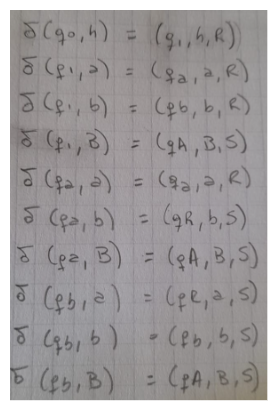 δ(q0, h) = (q1, h, R)
δ(q1, a) = (qa, a, R)
δ(q1, b) = (qb, b, R)
δ(q1, B) = (qA, B, S)
δ(qa, a) = (qa, a, R)
δ(qa, b) = (qR, b, S)
δ(qa, B) = (qA, B, S)
δ(qb, a) = (qR, a, S)
δ(qb, b) = (qb, b, S)
δ(qb, B) = (qA, B, S)